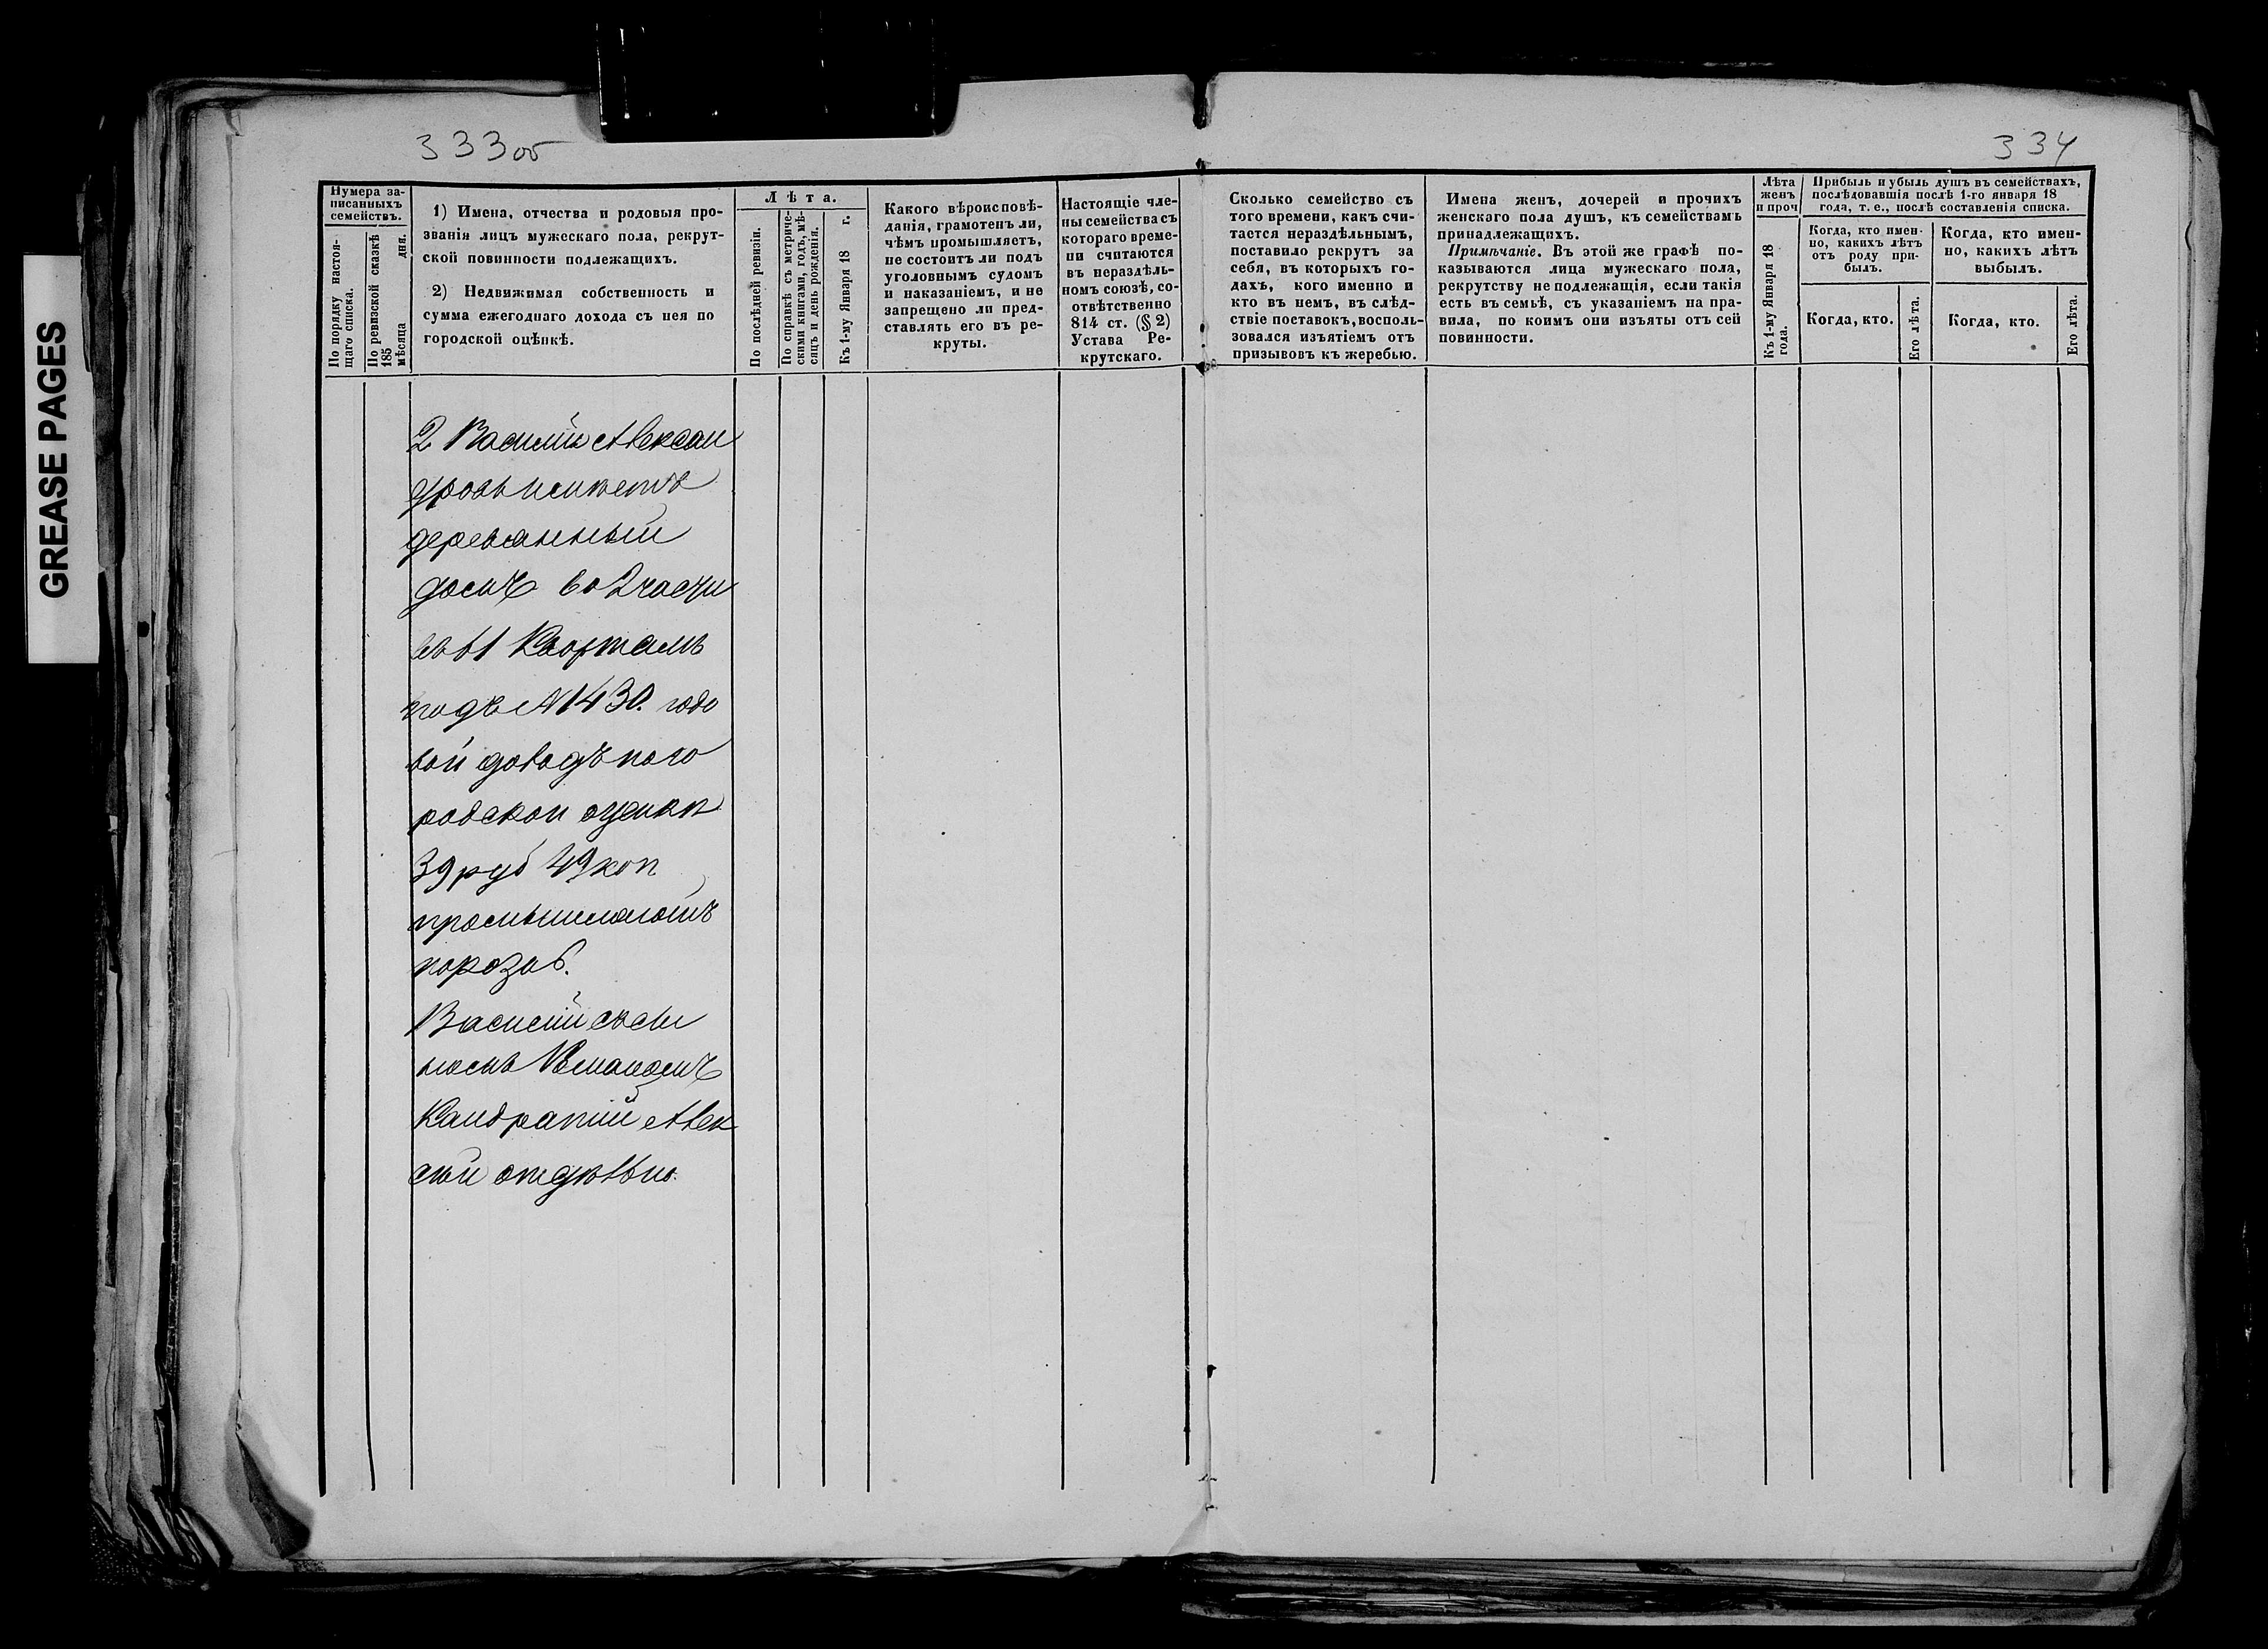 GREASE PAGES
333об
334
Нумера записанныхъ семействъ.
По порядку настоящаго списка.
По ревизской сказкѣ 185 мѣсяца дня.
1) Имена, отчества и родовыя прозванія лицъ мужескаго пола, рекрутской повинности подлежащихъ.
2) Недвижимая собственность и сумма ежегоднаго дохода съ нея по городской оцѣнкѣ.
Лѣта.
По послѣдней ревизіи.
По справкѣ съ метрическими книгами, годъ, мѣсяцъ и день рожденія.
Къ 1-му Января 18 г.
Какого вѣроисповѣданія, грамотенъ ли, чѣмъ промышляетъ, не состоитъ ли подъ уголовнымъ судомъ и наказаніемъ, и не запрещено ли представлять его въ рекруты.
Настоящіе члены семейства съ котораго времени считаются въ нераздѣльномъ союзѣ, соотвѣтственно 814 ст. (§ 2) Устава Рекрутскаго.
Сколько семейство съ того времени, какъ считается нераздѣльнымъ, поставило рекрутъ за себя, въ которыхъ годахъ, кого именно и кто въ немъ, въ слѣдствіе поставокъ, воспользовался изъятіемъ отъ призывовъ къ жеребью.
Имена женъ, дочерей и прочихъ женскаго пола душъ, къ семействамъ принадлежащихъ.
Примѣчаніе. Въ этой же графѣ показываются лица мужескаго пола, рекрутству не подлежащія, если такія есть въ семьѣ, съ указаніемъ на правила, по коимъ они изъяты отъ сей повинности.
Лѣта женъ и проч
Къ 1-му Января 18 года.
Прибыль и убыль душъ въ семействахъ, послѣдовавшія послѣ 1-го января 18 года, т. е., послѣ составленія списка.
Когда, кто именно, какихъ лѣтъ отъ роду прибылъ.
Когда, кто именно, какихъ лѣтъ выбылъ.
Когда, кто.
Его лѣта.
Когда, кто.
Его лѣта.
2 Василій Алексан
дровъ имѣетъ
деревянный
домъ во 2 части
въ 61 Кварталѣ
подъ N 1430. годо
вой доходъ по го
родской оценкѣ
39 руб 49 коп
промышляютъ
порознь.
Василій съ сы
номъ
Кандратій Алек
сѣй отдѣльно.